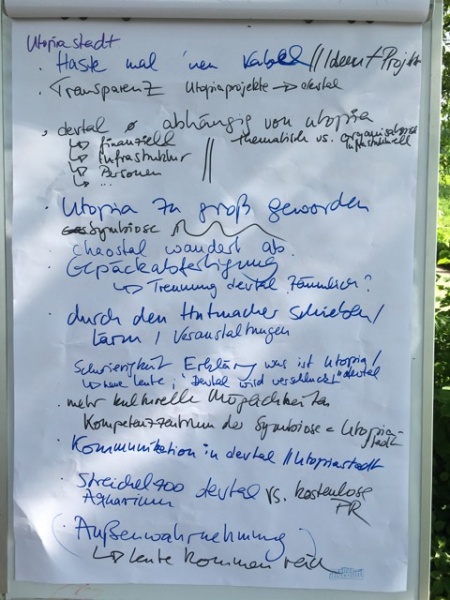 Utopiastadt
· Haste mal 'nen Kabel // Ideen + Projekt
· Transparenz Utopiaprojekte → devtal
· devtal abhängig von utopia
↳ finanziell // thematisch vs. organisatorisch
↳ Infrastruktur infrastrukturell
↳ Personen
↳ ...
· Utopia zu groß geworden
Symbiose
· chaostal wandert ab.
· Gepäckabfertigung
↳ Trennung devtal räumlich?
· durch den Hutmacher schieben /
Lärm / Veranstaltungen
Schwierigkeit Erklärung was ist utopia /
↳ neue Leute, "Devtal wird verschluckt" devtal
· mehr kulturelle Möglichkeiten
Kompetenzzentrum der Symbiose = Utopia-
stadt
· Kommunikation in devtal // Utopiastadt
· Streichelzoo devtal vs. kostenlose
Aquarium PR
( · Außenwahrnehmung )
↳ Leute kommen rein